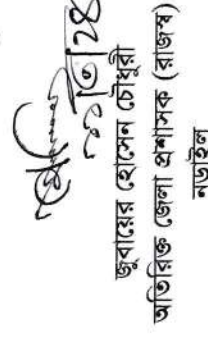 জুবায়ের হোসেন চৌধুরী
অতিরিক্ত জেলা প্রশাসক (রাজস্ব)
নড়াইল